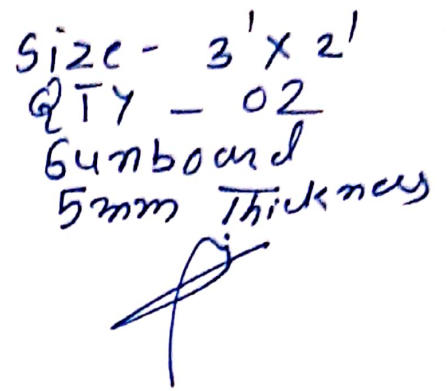 Size - 3' x 2'
QTY - 02
Sunboard
5mm Thickness